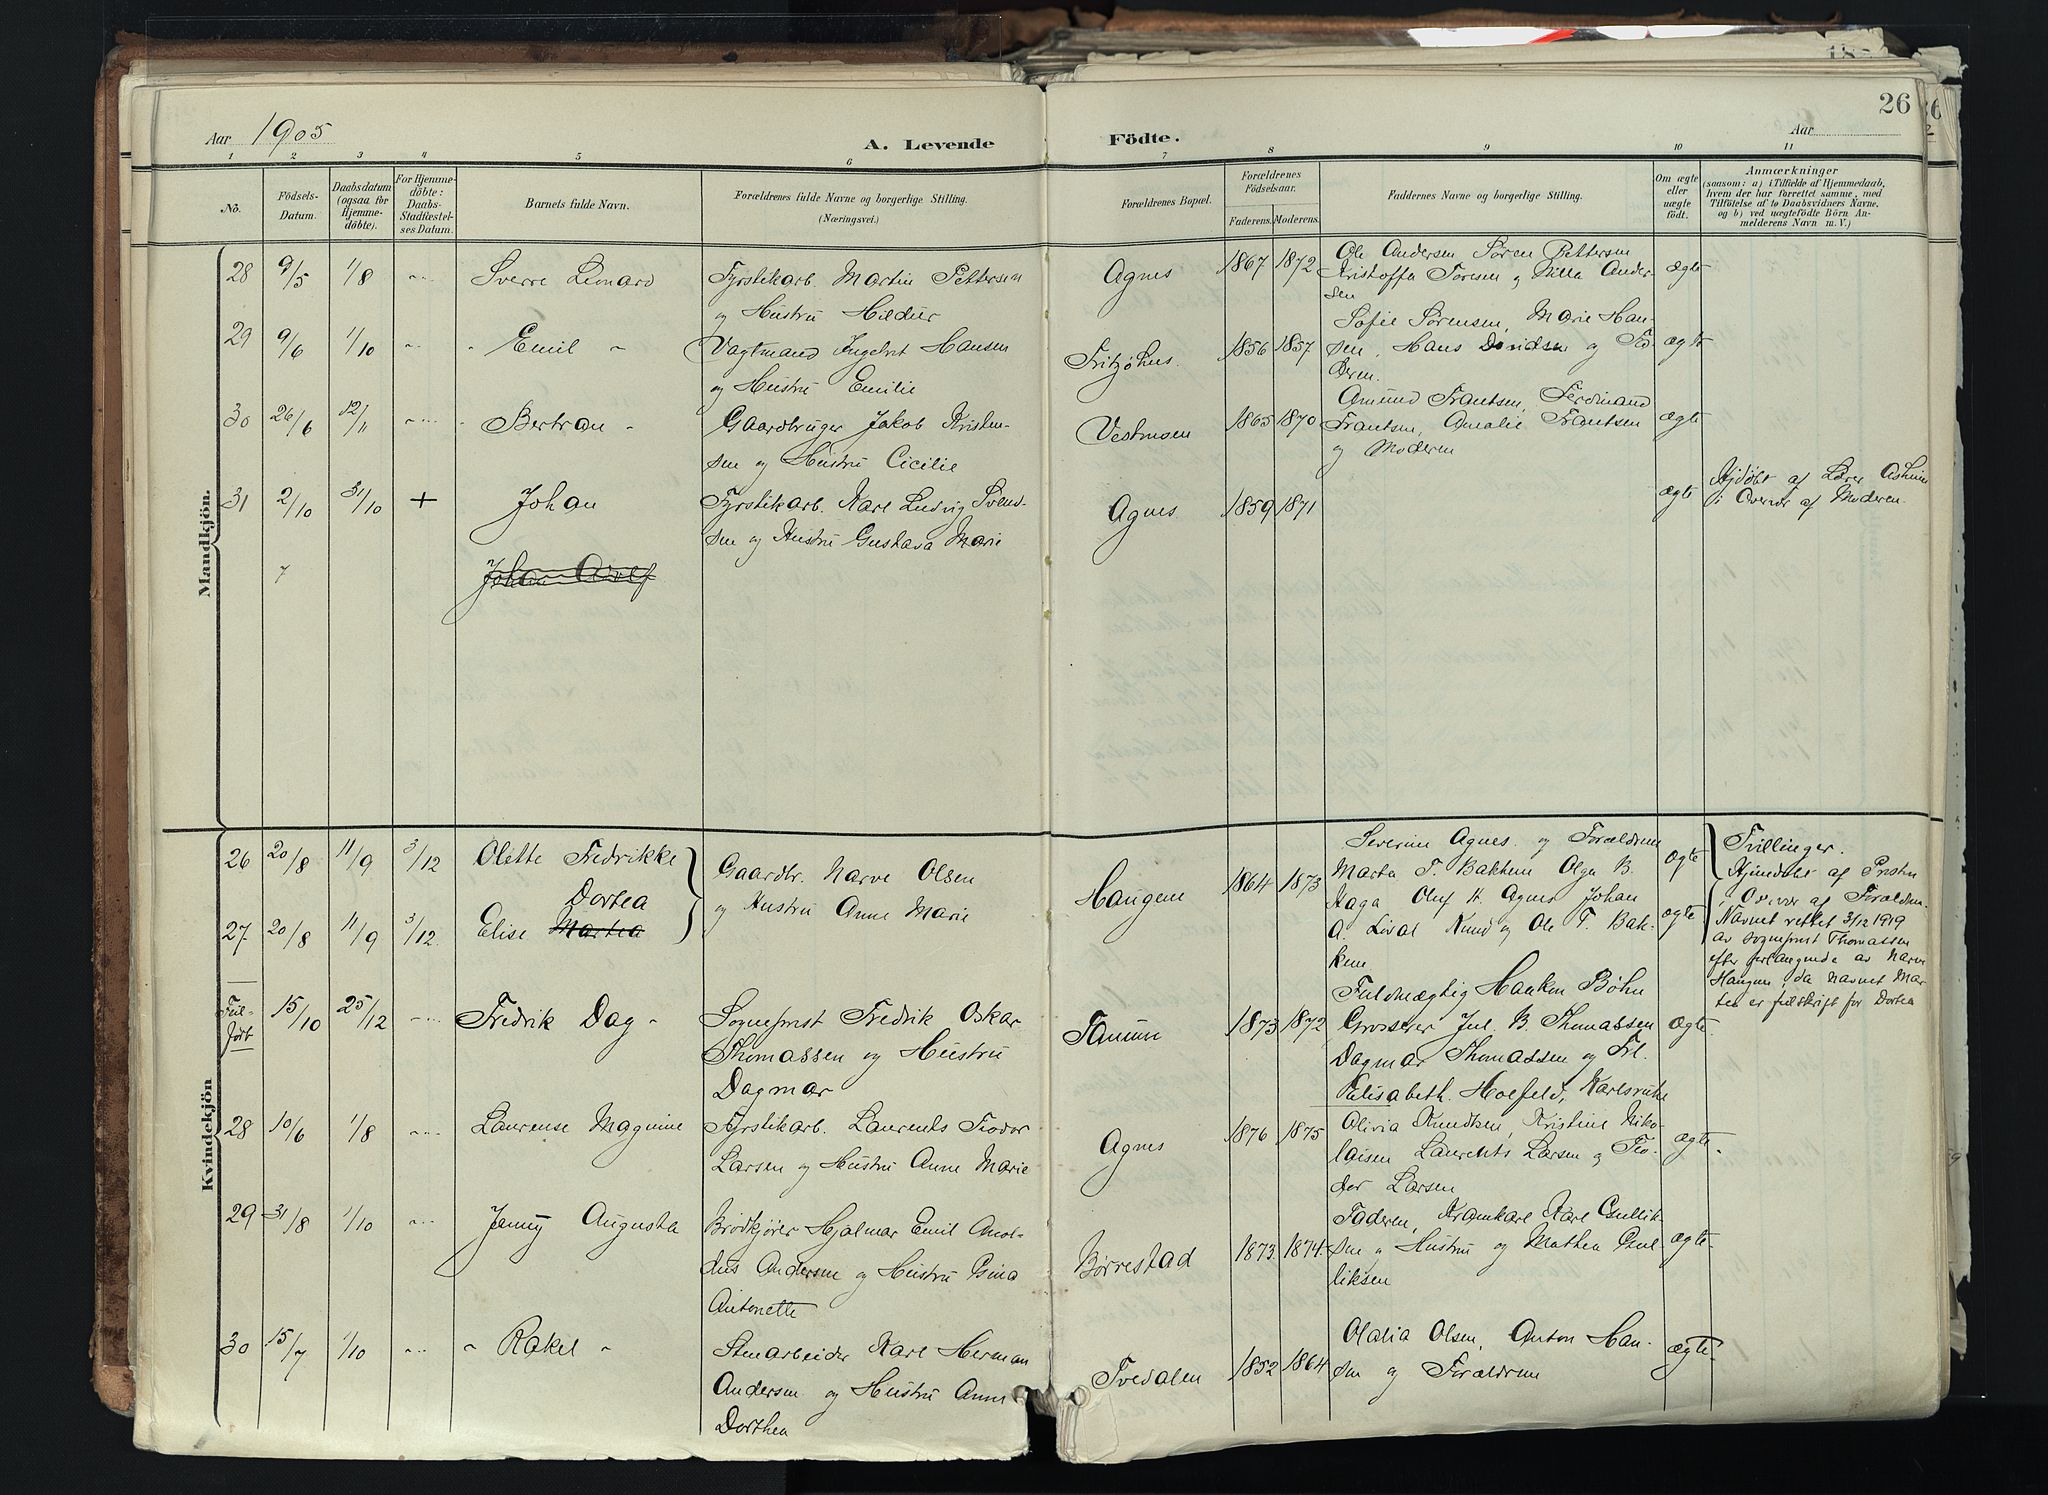 26
Aar 1905
A. Levende
Födte.
Aar
1 2 3 4 5 6 7 8 9 10 11
No.
Födsels-
Datum.
Daabsdatum
(ogsaa for
Hjemme-
döbte).
For Hjemme-
döbte:
Daabs-
Stadfæstel-
ses Datum.
Barnets fulde Navn.
Forældrenes fulde Navne og borgerlige Stilling.
(Næringsvei.)
Forældrenes Bopæl.
Forældrenes
Födselsaar.
Faderens. Moderens.
Faddernes Navne og borgerlige Stilling.
Om ægte
eller
uægte
födt.
Anmærkninger
(saasom: a) i Tilfælde af Hjemmedaab,
hvem der har forrettet samme, med
Tilföielse af to Daabsvidners Navne,
og b) ved uægtefödte Börn An-
melderens Navn m. V.)
Mandkjön.
28 9/5 1/8 Sverre Leonard
Fyrstikarb. Martin Pettersen
og Hustru Hildur
Agnes 1867 1872
Ole Andersen Søren Pettersen
Kristoffa Toresen og Milla Ander-
sen
ægte
29 9/6 1/10 - Emil -
Vagtmand Ingebret Hansen
og Hustru Emilie
Fritzøhus. 1856 1857
Sofie Sørensen, Marie Han-
sen, Hans Davidsen og Fa-
deren.
ægte
30 26/6 12/11 - Bertran -
Gaardbruger Jakob Kristen-
sen og Hustru Cicilie
Vestrusen 1865 1870
Amund Frantsen, Ferdinand
Frantsen, Amalie Frantsen
og Moderen
ægte
31 2/10 31/10 + Johan
Fyrstikarb. Karl Ludvig Svend-
sen og Hustru Gustava Marie
Agnes 1859 1871
ægte
Hjdøbt af Lærer
i Overvær af Moderen.
7 Johan Adolf
Kvindekjön
26 20/8 11/9 3/12 Olette Fredrikke
27 20/8 11/9 3/12 Elise Martea Dortea
Gaardbr. Narve Olsen
og Hustru Anne Marie
Haugene 1864 1873
Severine Agnes og Forældrene
Marta T. Bakkene Olga B.
Haga Olef H. Agnes Johan
A. Løval Knud og Ole T. Bak-
kene
ægte
ægte
Tvillinger.
Hjemdøbt af Presten
i Overvær af Forældrene.
Navnet rettet 3/12 1919
av sogneprest Thomassen
efter forlangende av Narve
Haugen, da navnet Mar-
tea er feilskrift for Dortea
Feil-
ført
15/10 25/12 Fredrik Dag -
Sogneprest Fredrik Oskar
Thomassen og Hustru
Dagmar
Tanum 1873 1872
Fuldmægtig Haakon Bøhn
Grosserer Jul. B. Thomassen
Dagmar Thomassen og Frk.
Elisabeth Hoefeld, Karlsruhe
ægte.
28 10/6 1/8 Laurense Magnine
Fyrstikarb. Laurends Teodor
Larsen og Hustru Anne Marie
Agnes 1876 1875
Olivia Knudtsen, Kristine Niko-
laisen Laurents Larsen og Teo-
dor Larsen
ægte.
29 31/8 1/10 Jenny Augusta
Brødkjører Hjalmar Emil Anol-
dus Andersen og Hustru Gina
Antonette
Børrestad 1873 1874
Faderen, Kramkarl Karl Gullik-
sen og Hustru og Mathea Gul-
liksen
ægte.
30 15/7 1/10 - Rakel -
Stenarbeider Karl Herman
Andersen og Hustru Anne
Dorthea
Tvedalen 1852 1864
Olalia Olsen, Anton Han-
sen og Forældrene
ægte.